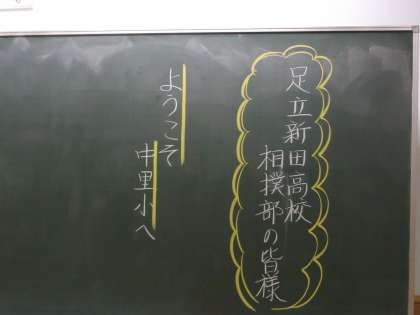 足立新田高校
相撲部の皆様
ようこそ
中里小へ